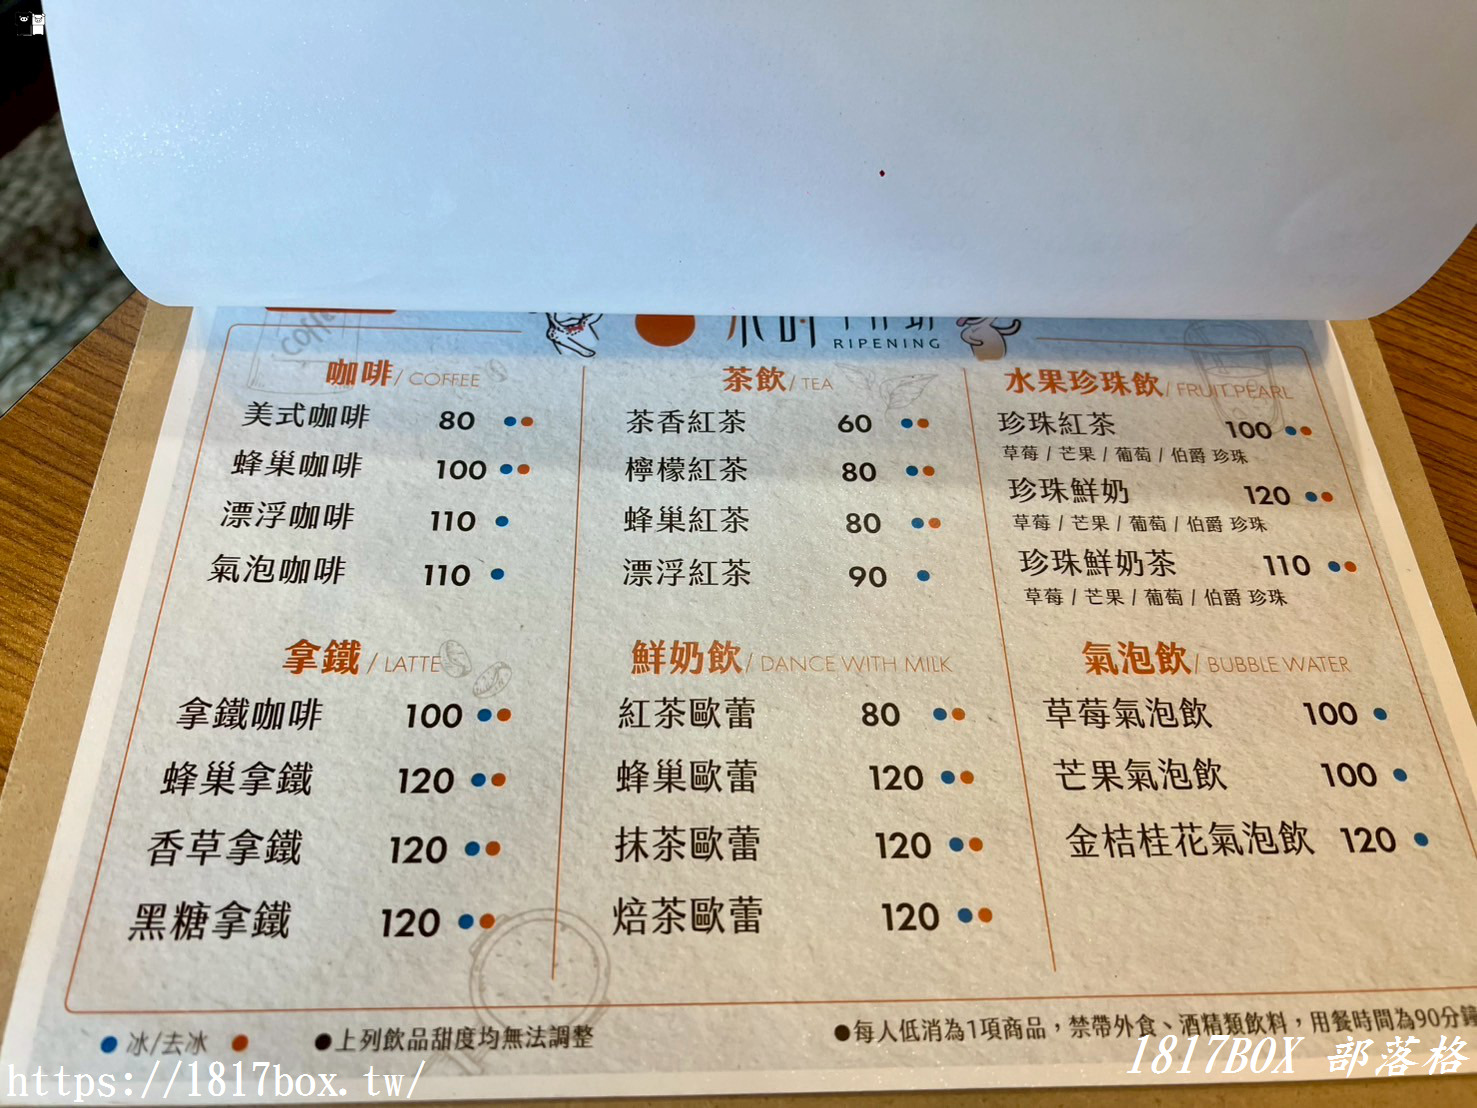 coffe
RIPENING
咖啡/ COFFEE
美式咖啡 80
蜂巢咖啡 100
漂浮咖啡 110
氣泡咖啡 110
拿鐵 / LATTE
拿鐵咖啡 100
蜂巢拿鐵 120
香草拿鐵 120
黑糖拿鐵 120
茶飲/ TEA
茶香紅茶 60
檸檬紅茶 80
蜂巢紅茶 80
漂浮紅茶 90
鮮奶飲/ DANCE WITH MILK
紅茶歐蕾 80
蜂巢歐蕾 120
抹茶歐蕾 120
焙茶歐蕾 120
水果珍珠飲/ FRUIT.PEARL
珍珠紅茶 100
草莓 / 芒果 / 葡萄 / 伯爵 珍珠
珍珠鮮奶 120
草莓 / 芒果 / 葡萄 / 伯爵 珍珠
珍珠鮮奶茶 110
草莓 / 芒果 / 葡萄 / 伯爵 珍珠
氣泡飲/ BUBBLE WATER
草莓氣泡飲 100
芒果氣泡飲 100
金桔桂花氣泡飲 120
●冰/去冰 ● ●上列飲品甜度均無法調整
●每人低消為1項商品，禁帶外食、酒精類飲料，用餐時間為90分鐘
https://1817box.tw/
1817BOX 部落格